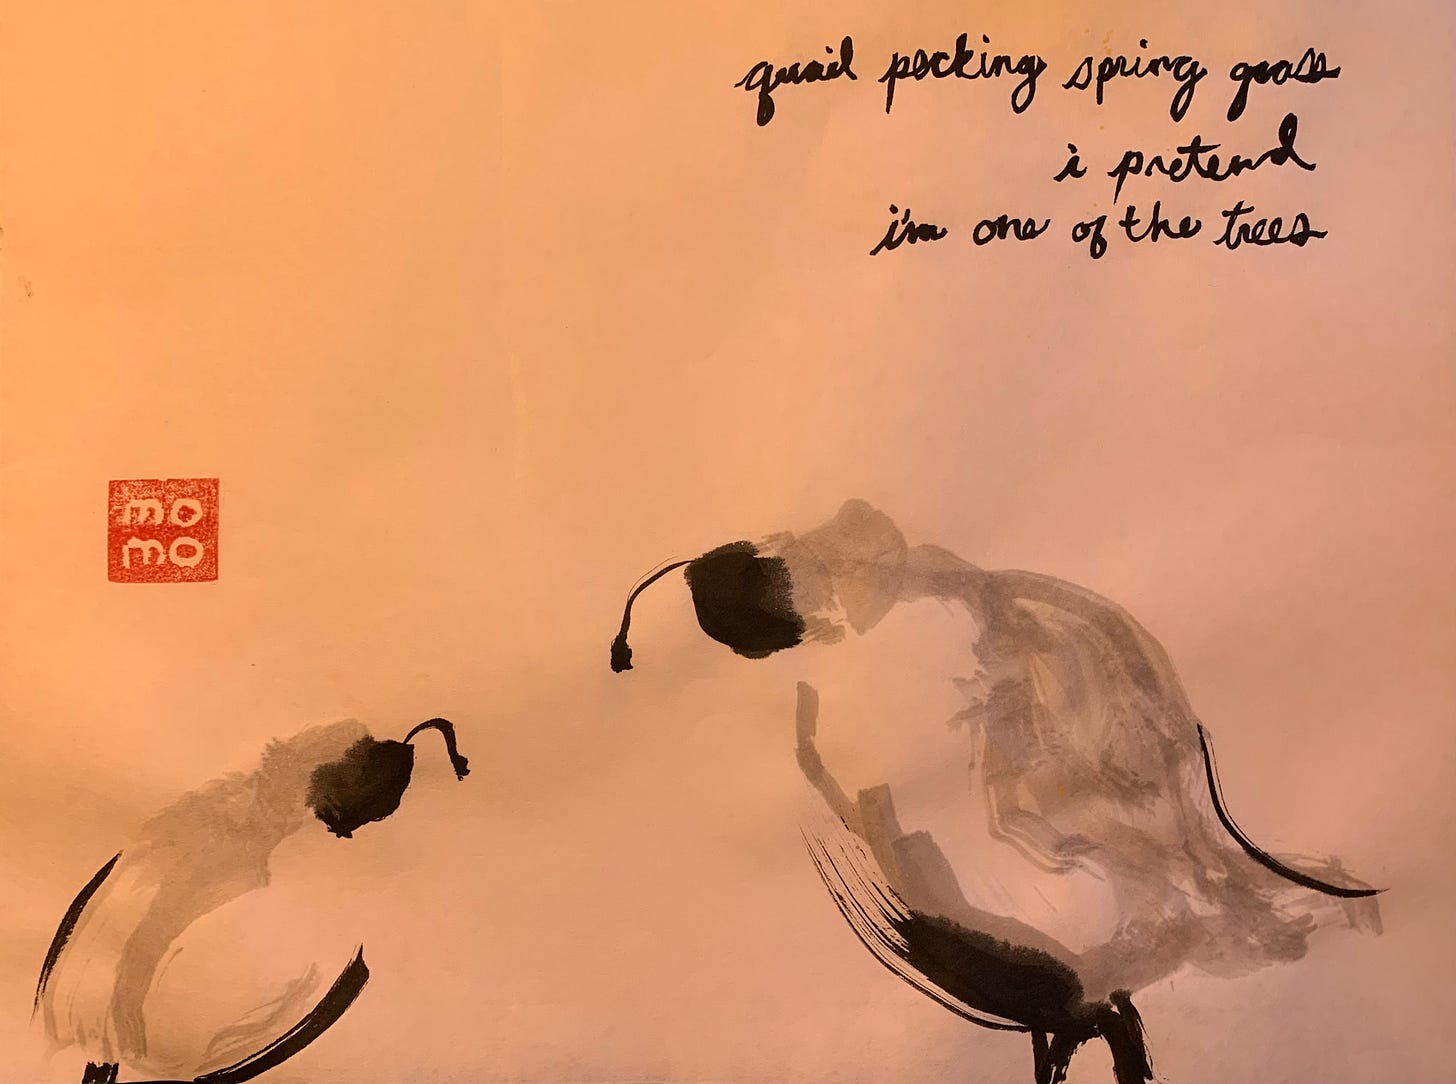 quail pecking spring grass
i pretend
i'm one of the trees
mo
mo